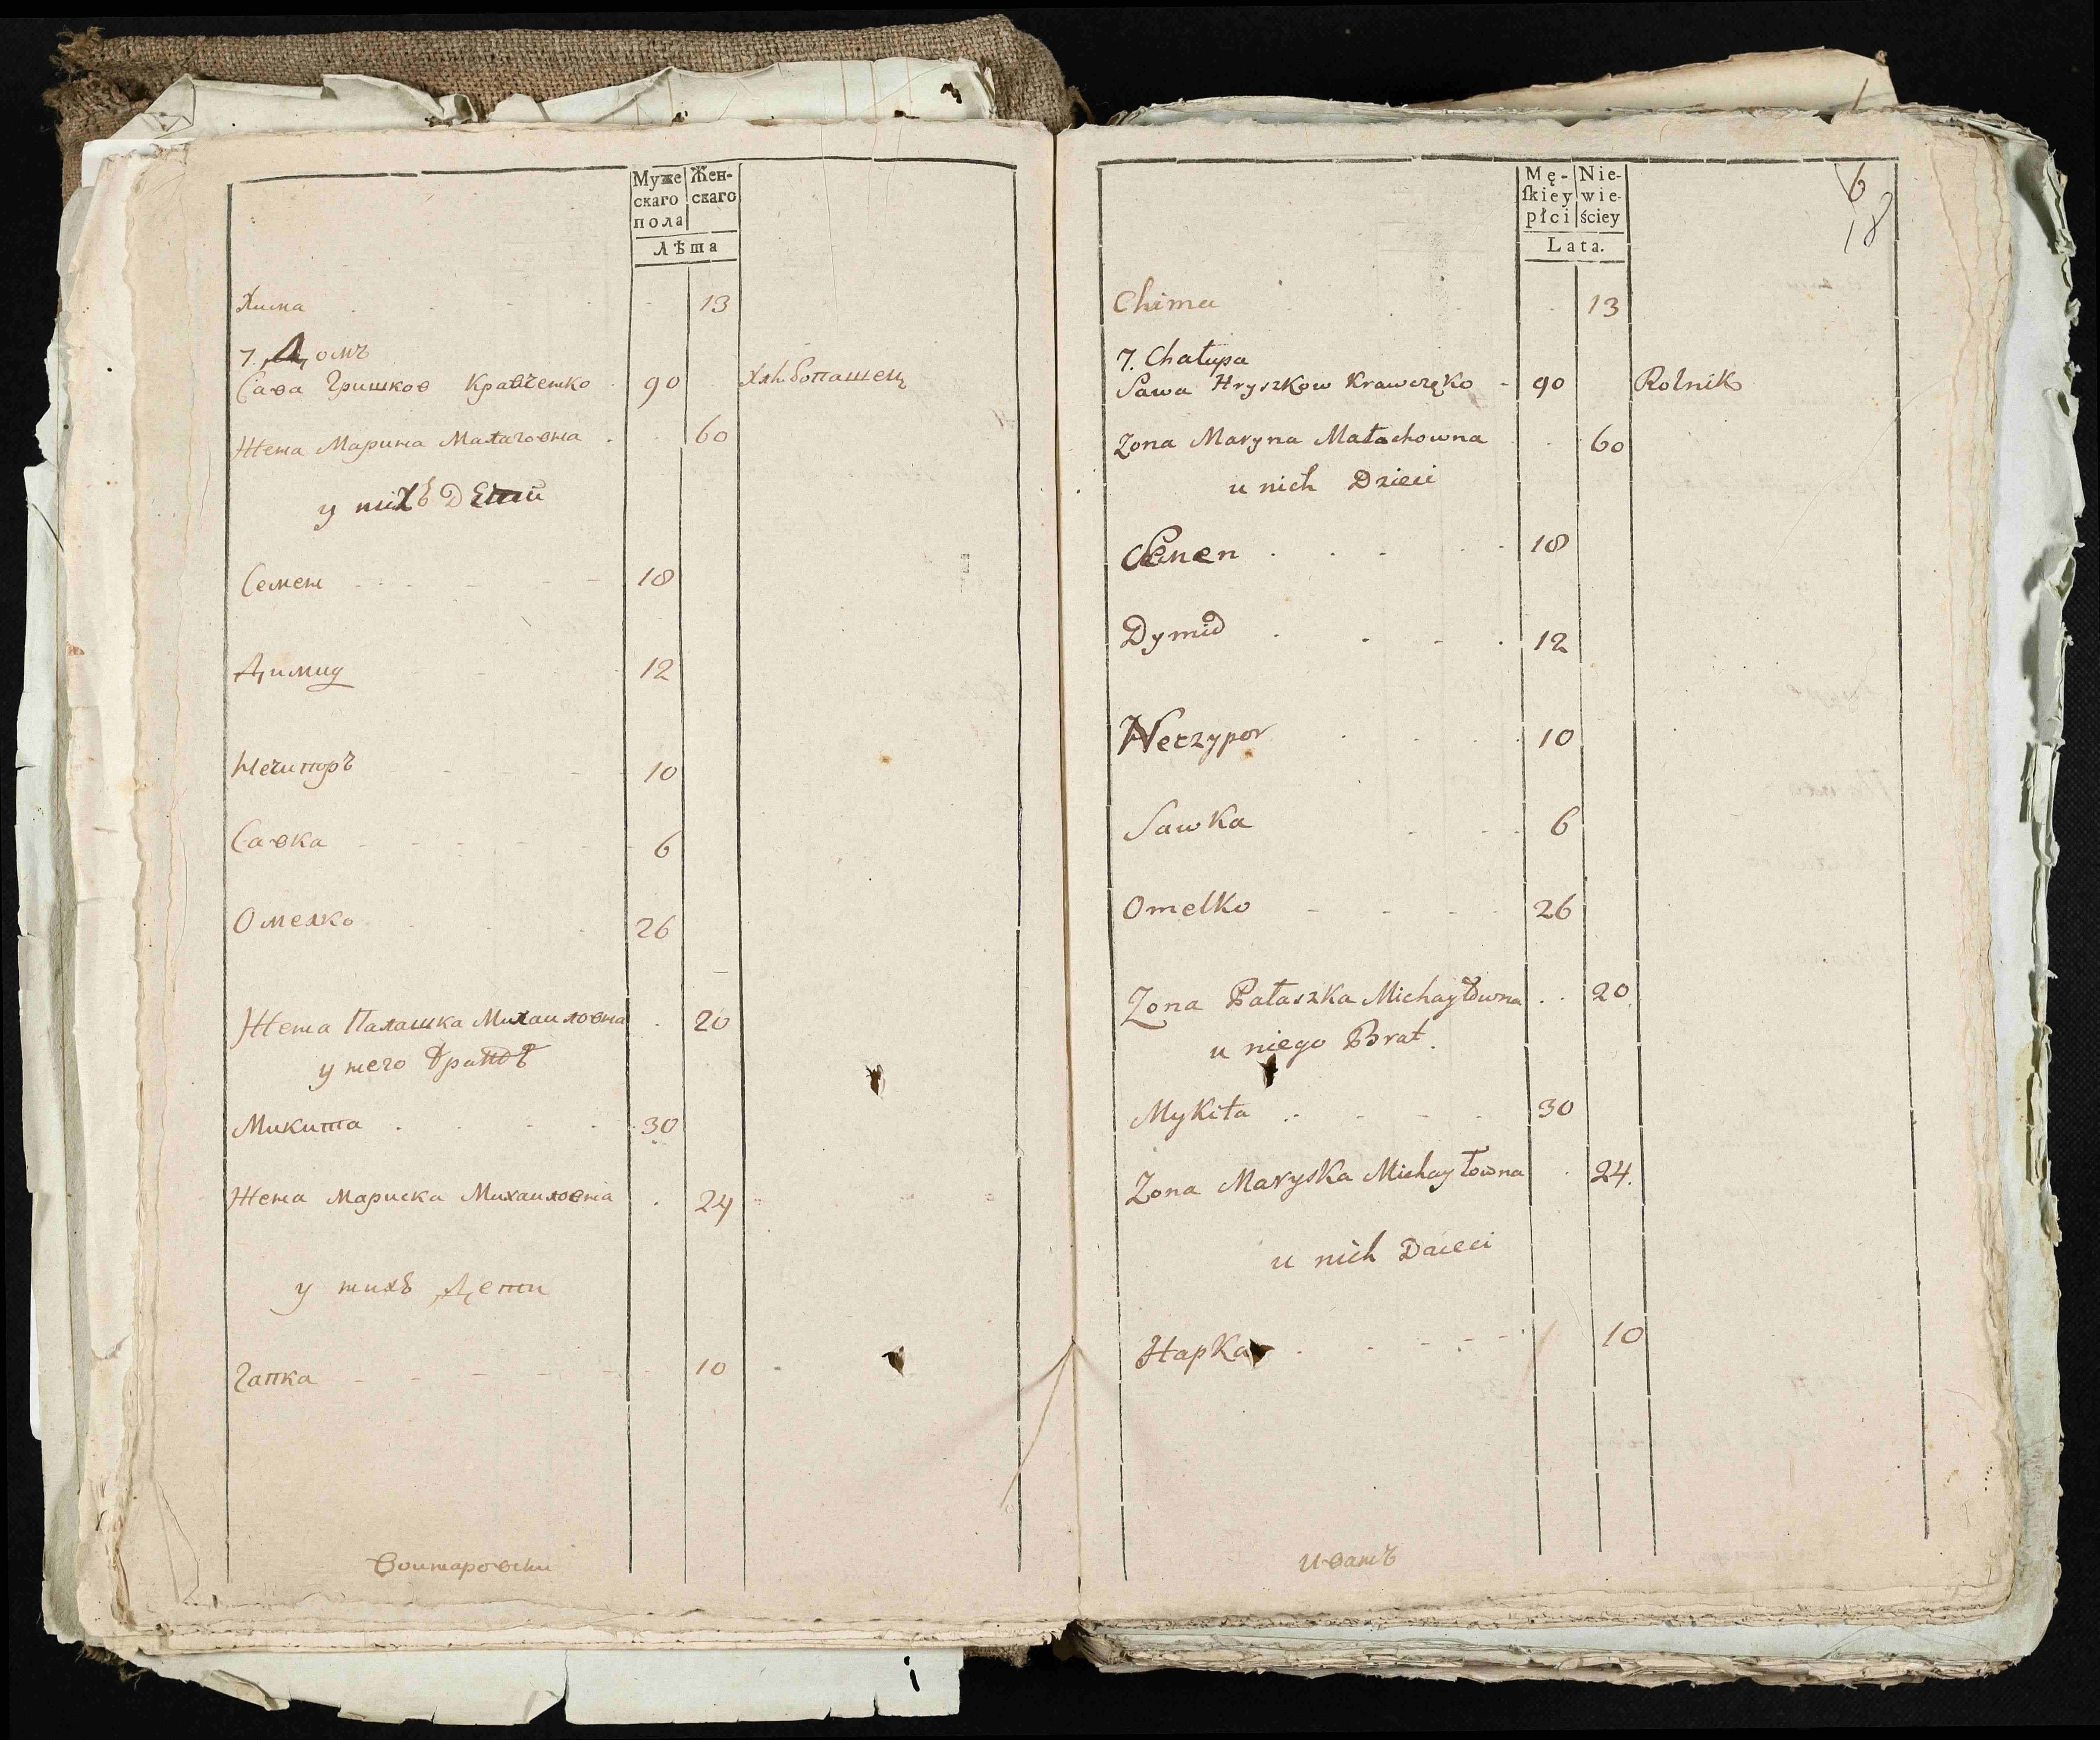 Муже скаго пола
Женскаго
Лѣта
Хима 13
7. Домъ
Сава Гришков Кравченко 90 Хлѣбопашец
Жена Марина Малаховна 60
у нихъ Дети
Семен 18
Димид 12
Нечипоръ 10
Савка 6
Омелко 26
Жена Палашка Михаиловна 20
у него братъ
Микита 30
Жена Мариска Михаиловна 24
у нихъ Дети
Гапка 10
6
18
Mę-ſkiey płci
Nie-wie-ściey
Lata.
Chima 13
7. Chałupa
Sawa Hryszkow Krawczęko 90 Rolnik
Zona Maryna Małachowna 60
u nich Dzieci
Semen 18
Dymid 12
Neczypor 10
Sawka 6
Omelko 26
Zona Pałaszka Michayłowna 20
u niego Brat.
Mykita 30
Zona Maryska Michayłowna 24.
u nich Dzieci
Hapka 10
Иванъ